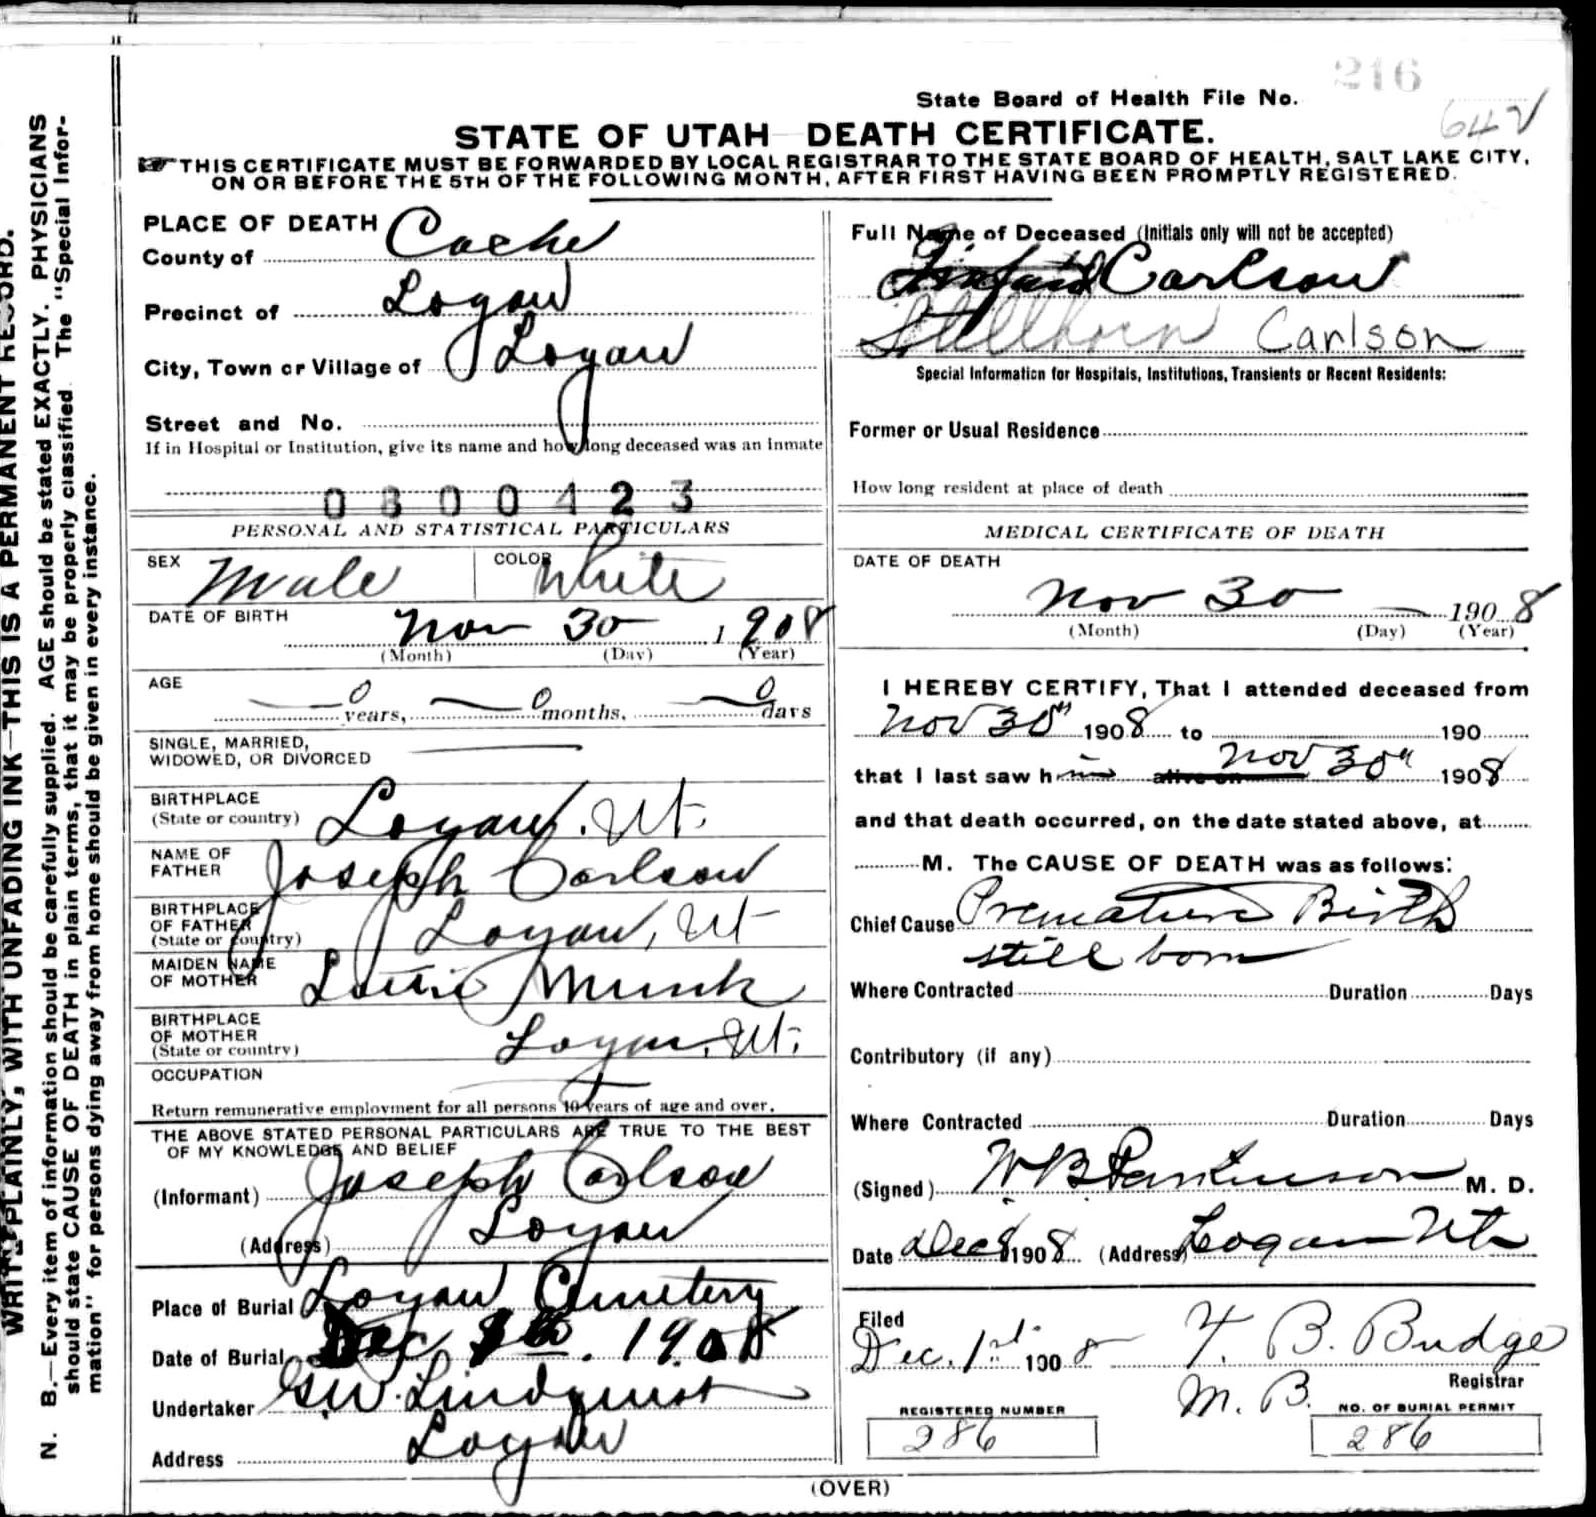 WRITE PLAINLY, WITH UNFADING INK—THIS IS A PERMANENT RECORD.
N. B.—Every item of information should be carefully supplied. AGE should be stated EXACTLY. PHYSICIANS
should state CAUSE OF DEATH in plain terms, that it may be properly classified. The "Special Infor-
mation" for persons dying away from home should be given in every instance.
216
State Board of Health File No.
STATE OF UTAH DEATH CERTIFICATE.
THIS CERTIFICATE MUST BE FORWARDED BY LOCAL REGISTRAR TO THE STATE BOARD OF HEALTH, SALT LAKE CITY,
ON OR BEFORE THE 5TH OF THE FOLLOWING MONTH, AFTER FIRST HAVING BEEN PROMPTLY REGISTERED.
PLACE OF DEATH
County of Cache
Precinct of Logan
City, Town or Village of Logan
Street and No.
If in Hospital or Institution, give its name and how long deceased was an inmate
0800423
PERSONAL AND STATISTICAL PARTICULARS
SEX Male COLOR White
DATE OF BIRTH Nov 30 1908
(Month) (Day) (Year)
AGE
0 years, 0 months, 0 days
SINGLE, MARRIED,
WIDOWED, OR DIVORCED
BIRTHPLACE
(State or country) Logan, Ut.
NAME OF
FATHER Joseph Carlson
BIRTHPLACE
OF FATHER
(State or country) Logan, Ut
MAIDEN NAME
OF MOTHER Lottie Munk
BIRTHPLACE
OF MOTHER
(State or country) Logan, Ut.
OCCUPATION
Return remunerative employment for all persons 10 years of age and over.
THE ABOVE STATED PERSONAL PARTICULARS ARE TRUE TO THE BEST
OF MY KNOWLEDGE AND BELIEF
(Informant) Joseph Carlson
(Address) Logan
Place of Burial Logan Cemetery
Date of Burial Dec 1908
Undertaker G.W. Lindquist
Address Logan
Full Name of Deceased (Initials only will not be accepted)
Infant Carlson
Stillborn Carlson
Special Information for Hospitals, Institutions, Transients or Recent Residents:
Former or Usual Residence
How long resident at place of death
MEDICAL CERTIFICATE OF DEATH
DATE OF DEATH
Nov 30 1908
(Month) (Day) (Year)
I HEREBY CERTIFY, That I attended deceased from
Nov 30th 1908 to 190
that I last saw him alive on Nov 30th 1908
and that death occurred, on the date stated above, at
M. The CAUSE OF DEATH was as follows:
Chief Cause Premature Birth
still born
Where Contracted Duration Days
Contributory (if any)
Where Contracted Duration Days
(Signed) W B Parkinson M. D.
Date Dec 8 1908 (Address) Logan Ut
Filed
Dec. 1st 1908 F. B. Budge
M. B. Registrar
REGISTERED NUMBER
286
NO. OF BURIAL PERMIT
286
(OVER)